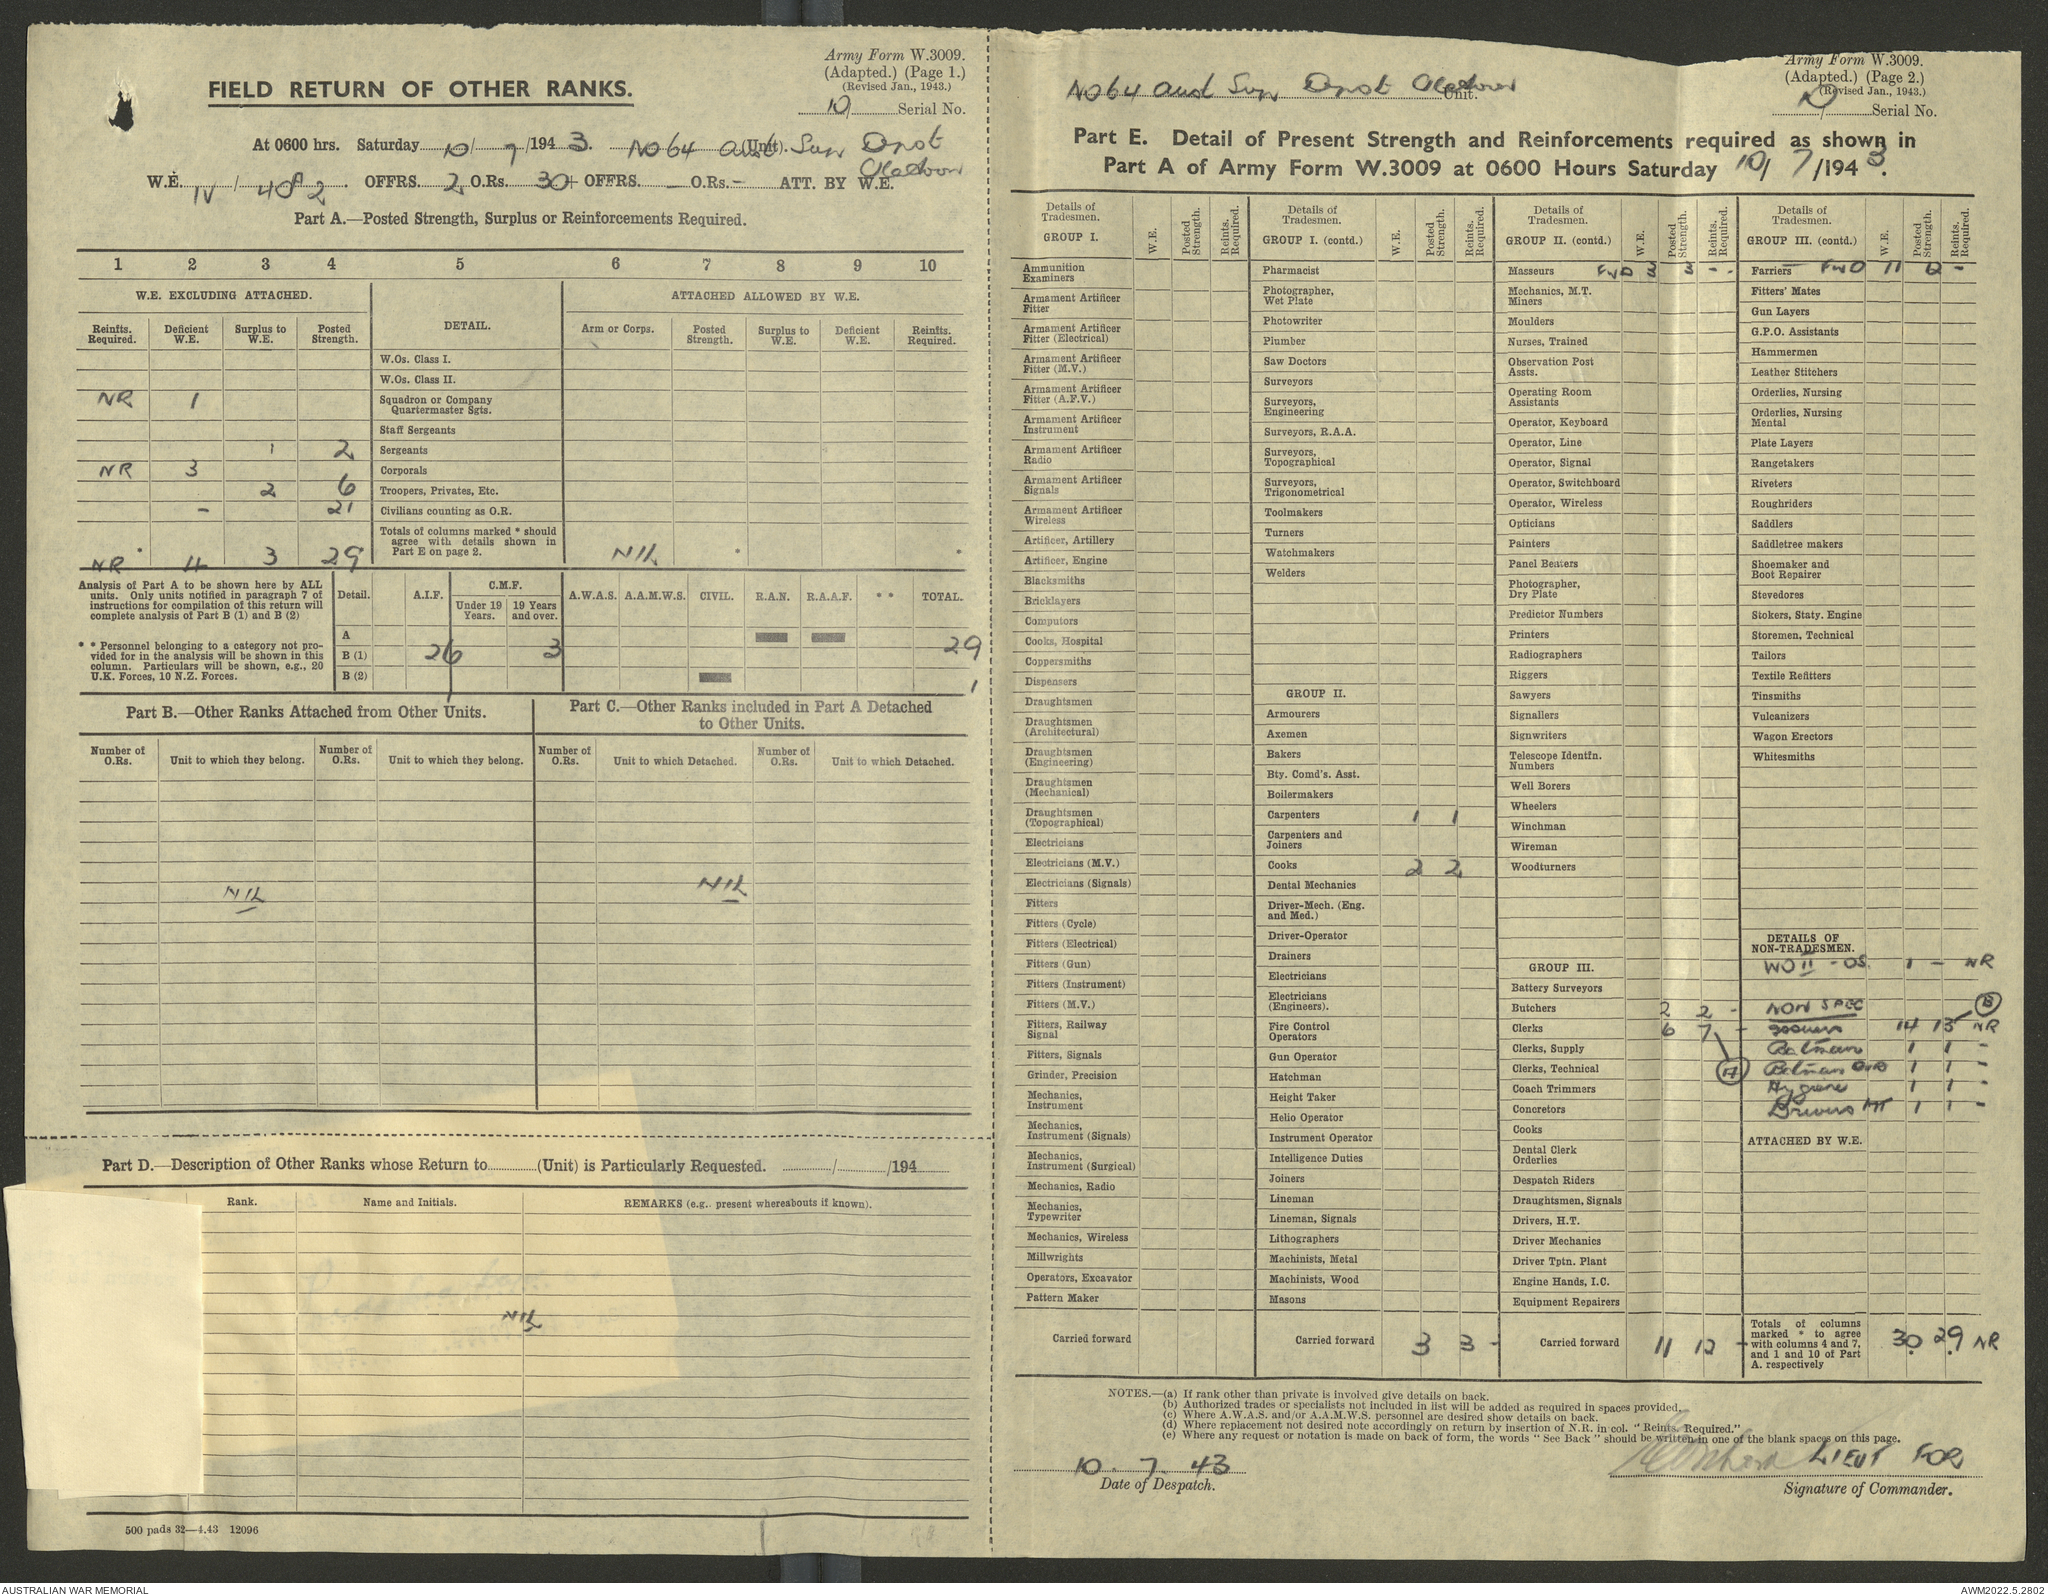 Army Form W.3009.
(Adapted.) (Page 1.)
(Revised Jan., 1943.)
10 Serial No.
FIELD RETURN OF OTHER RANKS.
At 0600 hrs. Saturday 10/7/1943. No 64 Aust Sup Depot (Unit).
W.E. IV / 40 2 OFFRS. 2 O.Rs. 30 + OFFRS. - O.Rs. - ATT. BY W.E.
Part A.—Posted Strength, Surplus or Reinforcements Required.
1 2 3 4 5 6 7 8 9 10
W.E. EXCLUDING ATTACHED. DETAIL. ATTACHED ALLOWED BY W.E.
Reinfts. Required. Deficient W.E. Surplus to W.E. Posted Strength. Arm or Corps. Posted Strength. Surplus to W.E. Deficient W.E. Reinfts. Required.
W.Os. Class I.
W.Os. Class II.
NR 1 Squadron or Company Quartermaster Sgts.
Staff Sergeants
1 2 Sergeants
NR 3 Corporals
2 6 Troopers, Privates, Etc.
- 21 Civilians counting as O.R.
Totals of columns marked * should agree with details shown in Part E on page 2.
NR 4 3 29 NIL
Analysis of Part A to be shown here by ALL units. Only units notified in paragraph 7 of instructions for compilation of this return will complete analysis of Part B (1) and B (2)
* * Personnel belonging to a category not provided for in the analysis will be shown in this column. Particulars will be shown, e.g., 20 U.K. Forces, 10 N.Z. Forces.
Detail. A.I.F. C.M.F. Under 19 Years. 19 Years and over. A.W.A.S. A.A.M.W.S. CIVIL. R.A.N. R.A.A.F. * * TOTAL.
A
B (1) 26 3 29
B (2) 1
Part B.—Other Ranks Attached from Other Units.
Part C.—Other Ranks included in Part A Detached to Other Units.
Number of O.Rs. Unit to which they belong. Number of O.Rs. Unit to which they belong. Number of O.Rs. Unit to which Detached. Number of O.Rs. Unit to which Detached.
NIL NIL
Part D.—Description of Other Ranks whose Return to (Unit) is Particularly Requested. / /194
Rank. Name and Initials. REMARKS (e.g. present whereabouts if known).
NIL
500 pads 32—4.43 12096
Army Form W.3009.
(Adapted.) (Page 2.)
(Revised Jan., 1943.)
10 Serial No.
No 64 Aust Sup Depot Unit.
Part E. Detail of Present Strength and Reinforcements required as shown in
Part A of Army Form W.3009 at 0600 Hours Saturday 10/7/1943.
Details of Tradesmen. W.E. Posted Strength. Reints. Required.
GROUP I.
Ammunition Examiners
Armament Artificer Fitter
Armament Artificer Fitter (Electrical)
Armament Artificer Fitter (M.V.)
Armament Artificer Fitter (A.F.V.)
Armament Artificer Instrument
Armament Artificer Radio
Armament Artificer Signals
Armament Artificer Wireless
Artificer, Artillery
Artificer, Engine
Blacksmiths
Bricklayers
Computors
Cooks, Hospital
Coppersmiths
Dispensers
Draughtsmen
Draughtsmen (Architectural)
Draughtsmen (Engineering)
Draughtsmen (Mechanical)
Draughtsmen (Topographical)
Electricians
Electricians (M.V.)
Electricians (Signals)
Fitters
Fitters (Cycle)
Fitters (Electrical)
Fitters (Gun)
Fitters (Instrument)
Fitters (M.V.)
Fitters, Railway Signal
Fitters, Signals
Grinder, Precision
Mechanics, Instrument
Mechanics, Instrument (Signals)
Mechanics, Instrument (Surgical)
Mechanics, Radio
Mechanics, Typewriter
Mechanics, Wireless
Millwrights
Operators, Excavator
Pattern Maker
Carried forward
Details of Tradesmen. W.E. Posted Strength. Reints. Required.
GROUP I. (contd.)
Pharmacist
Photographer, Wet Plate
Photowriter
Plumber
Saw Doctors
Surveyors
Surveyors, Engineering
Surveyors, R.A.A.
Surveyors, Topographical
Surveyors, Trigonometrical
Toolmakers
Turners
Watchmakers
Welders
GROUP II.
Armourers
Axemen
Bakers
Bty. Comd's. Asst.
Boilermakers
Carpenters 1 1
Carpenters and Joiners
Cooks 2 2
Dental Mechanics
Driver-Mech. (Eng. and Med.)
Driver-Operator
Drainers
Electricians
Electricians (Engineers).
Fire Control Operators
Gun Operator
Hatchman
Height Taker
Helio Operator
Instrument Operator
Intelligence Duties
Joiners
Lineman
Lineman, Signals
Lithographers
Machinists, Metal
Machinists, Wood
Masons
Carried forward 3 3 -
Details of Tradesmen. W.E. Posted Strength. Reints. Required.
GROUP II. (contd.)
Masseurs FWD 3 3 - -
Mechanics, M.T.
Miners
Moulders
Nurses, Trained
Observation Post Assts.
Operating Room Assistants
Operator, Keyboard
Operator, Line
Operator, Signal
Operator, Switchboard
Operator, Wireless
Opticians
Painters
Panel Beaters
Photographer, Dry Plate
Predictor Numbers
Printers
Radiographers
Riggers
Sawyers
Signallers
Signwriters
Telescope Identfn. Numbers
Well Borers
Wheelers
Winchman
Wireman
Woodturners
GROUP III.
Battery Surveyors
Butchers 2 2 -
Clerks 6 7 -
Clerks, Supply
Clerks, Technical A
Coach Trimmers
Concretors
Cooks
Dental Clerk Orderlies
Despatch Riders
Draughtsmen, Signals
Drivers, H.T.
Driver Mechanics
Driver Tptn. Plant
Engine Hands, I.C.
Equipment Repairers
Carried forward 11 12 -
Details of Tradesmen. W.E. Posted Strength. Reints. Required.
GROUP III. (contd.)
Farriers FWD 11 12 -
Fitters' Mates
Gun Layers
G.P.O. Assistants
Hammermen
Leather Stitchers
Orderlies, Nursing
Orderlies, Nursing Mental
Plate Layers
Rangetakers
Riveters
Roughriders
Saddlers
Saddletree makers
Shoemaker and Boot Repairer
Stevedores
Stokers, Staty. Engine
Storemen, Technical
Tailors
Textile Refitters
Tinsmiths
Vulcanizers
Wagon Erectors
Whitesmiths
DETAILS OF NON-TRADESMEN.
WO II - OS. 1 - NR
NON SPEC B
14 13 NR
Batman 1 1 -
Batman 1 1 -
Hygiene 1 1 -
Drivers MT 1 1 -
ATTACHED BY W.E.
Totals of columns marked * to agree with columns 4 and 7, and 1 and 10 of Part A. respectively 30 29 NR
NOTES.—(a) If rank other than private is involved give details on back.
(b) Authorized trades or specialists not included in list will be added as required in spaces provided.
(c) Where A.W.A.S. and/or A.A.M.W.S. personnel are desired show details on back.
(d) Where replacement not desired note accordingly on return by insertion of N.R. in col. "Reints. Required."
(e) Where any request or notation is made on back of form, the words "See Back" should be written in one of the blank spaces on this page.
10. 7. 43
Date of Despatch.
LIEUT FOR
Signature of Commander.
AUSTRALIAN WAR MEMORIAL
AWM2022.5.2802